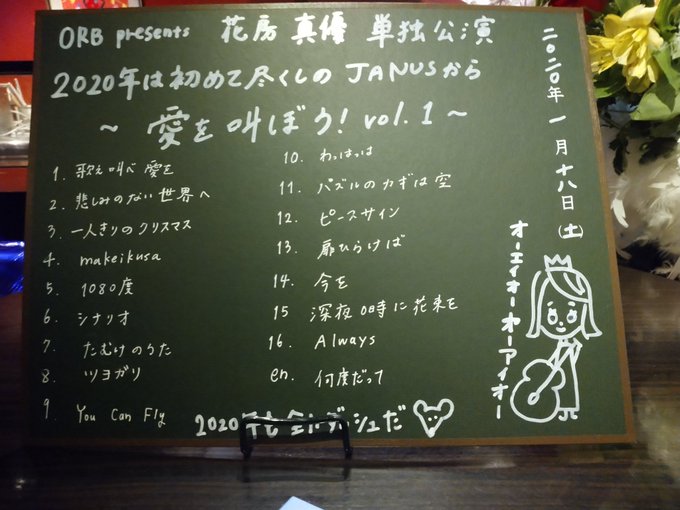 ORB presents 花房 真優 単独公演
2020年は初めて尽くしの JANUSから
～ 愛を叫ぼう! vol.1 ～
1. 歌え叫べ 愛を
2. 悲しみのない世界へ
3. 一人きりのクリスマス
4. makeikusa
5. 1080度
6. シナリオ
7. たむけのうた
8. ツヨガリ
9. You Can Fly
10. わっはっは
11. パズルのカギは空
12. ピースサイン
13. 扉ひらけば
14. 今を
15 深夜0時に花束を
16. Always
en. 何度だって
2020年も 全力ダッシュだ
二〇二〇年 一月十八日(土)
オーエィオーオーアィオー